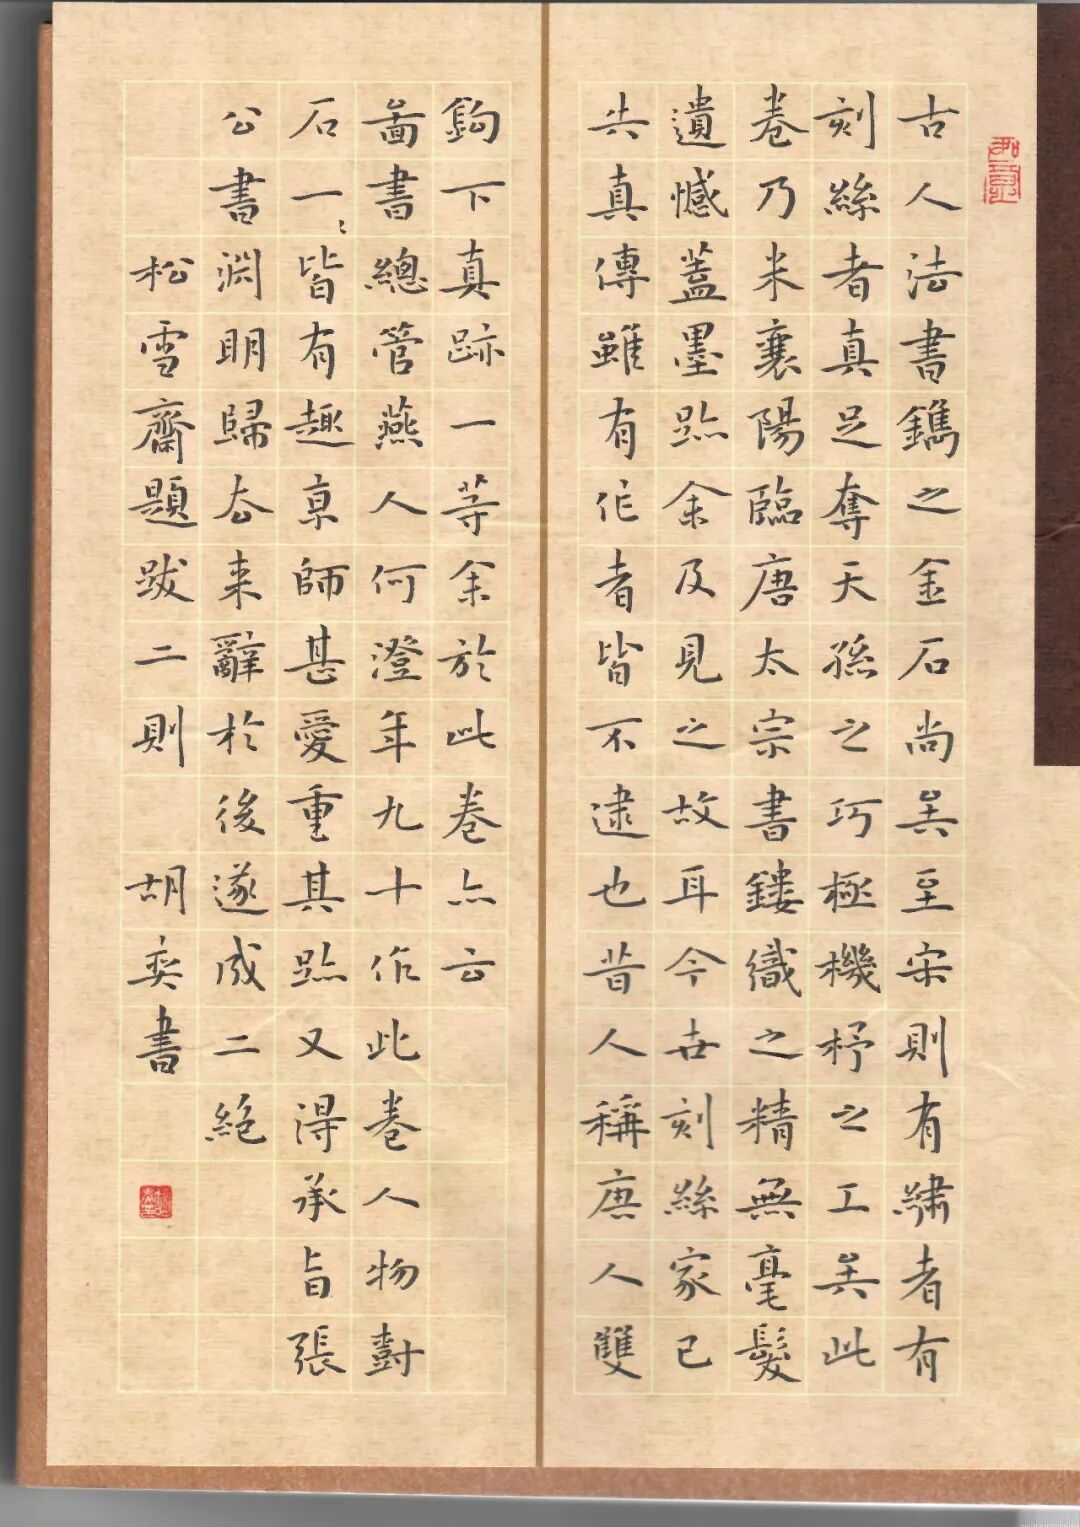 如意
古人法書鐫之金石尚矣至宋則有繡者有
刻絲者真足奪天孫之巧極機杼之工矣此
卷乃米襄陽臨唐太宗書鏤織之精無毫髮
遺憾蓋墨跡余及見之故耳今世刻絲家已
失真傳雖有作者皆不逮也昔人稱唐人雙
鉤下真跡一等余於此卷亦云
啚書總管燕人何澄年九十作此卷人物樹
石一〻皆有趣京師甚愛重其跡又得承旨張
公書淵明歸去來辭於後遂成二絕
松雪齋題跋二則 胡奕書